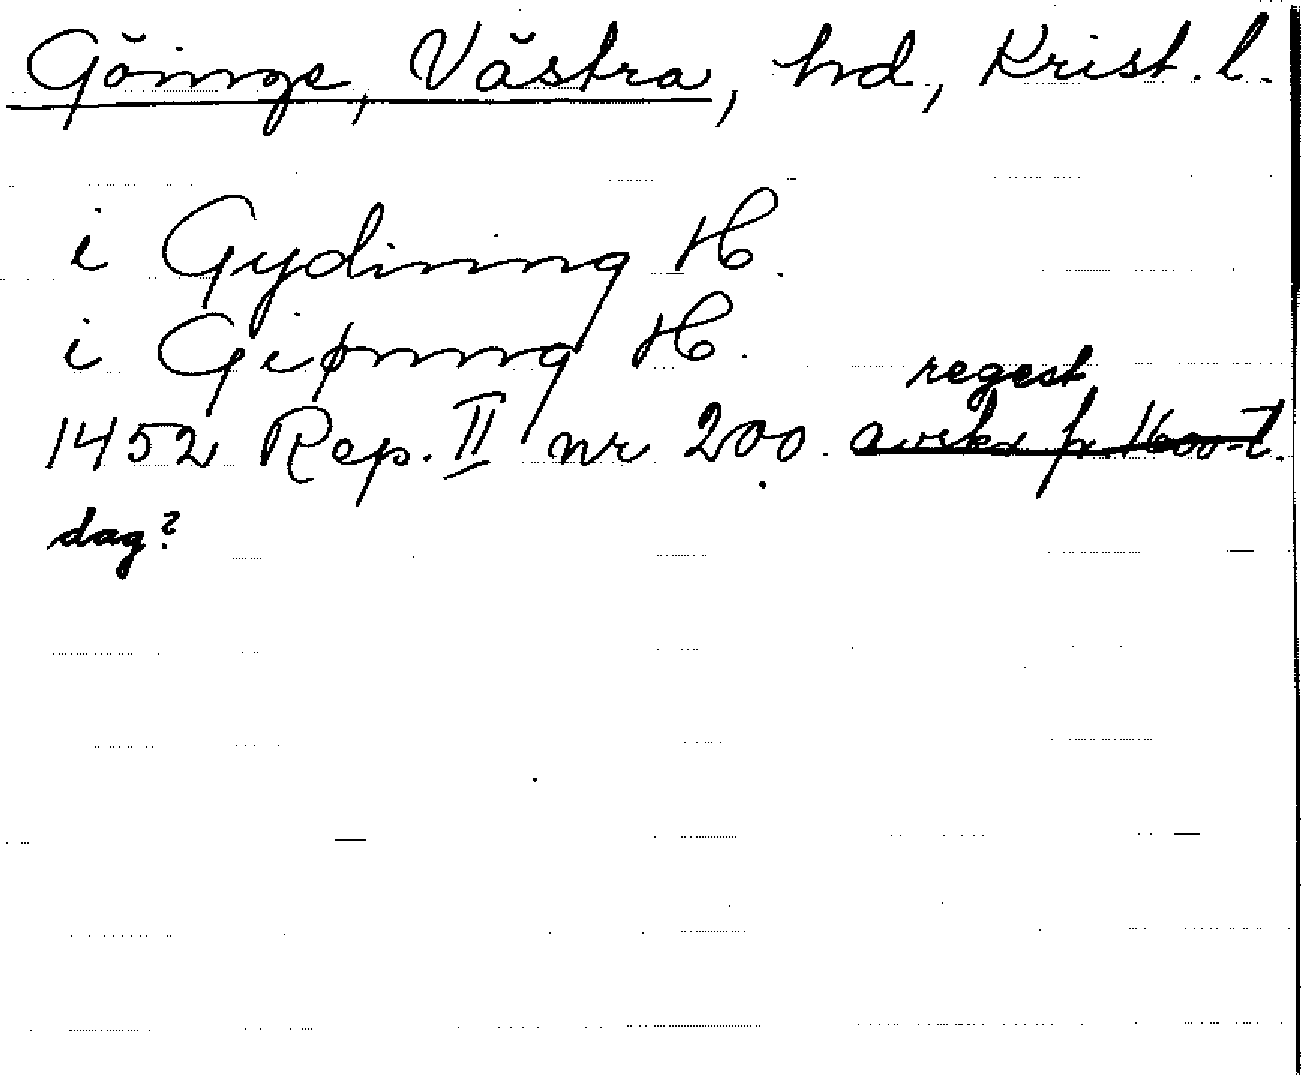 Göinge, Västra, hd, Krist. l.
i Gydinng H.
i Giønng H.
regest
1452 Rep. II nr 200. avskr fr 1600-t.
dag?